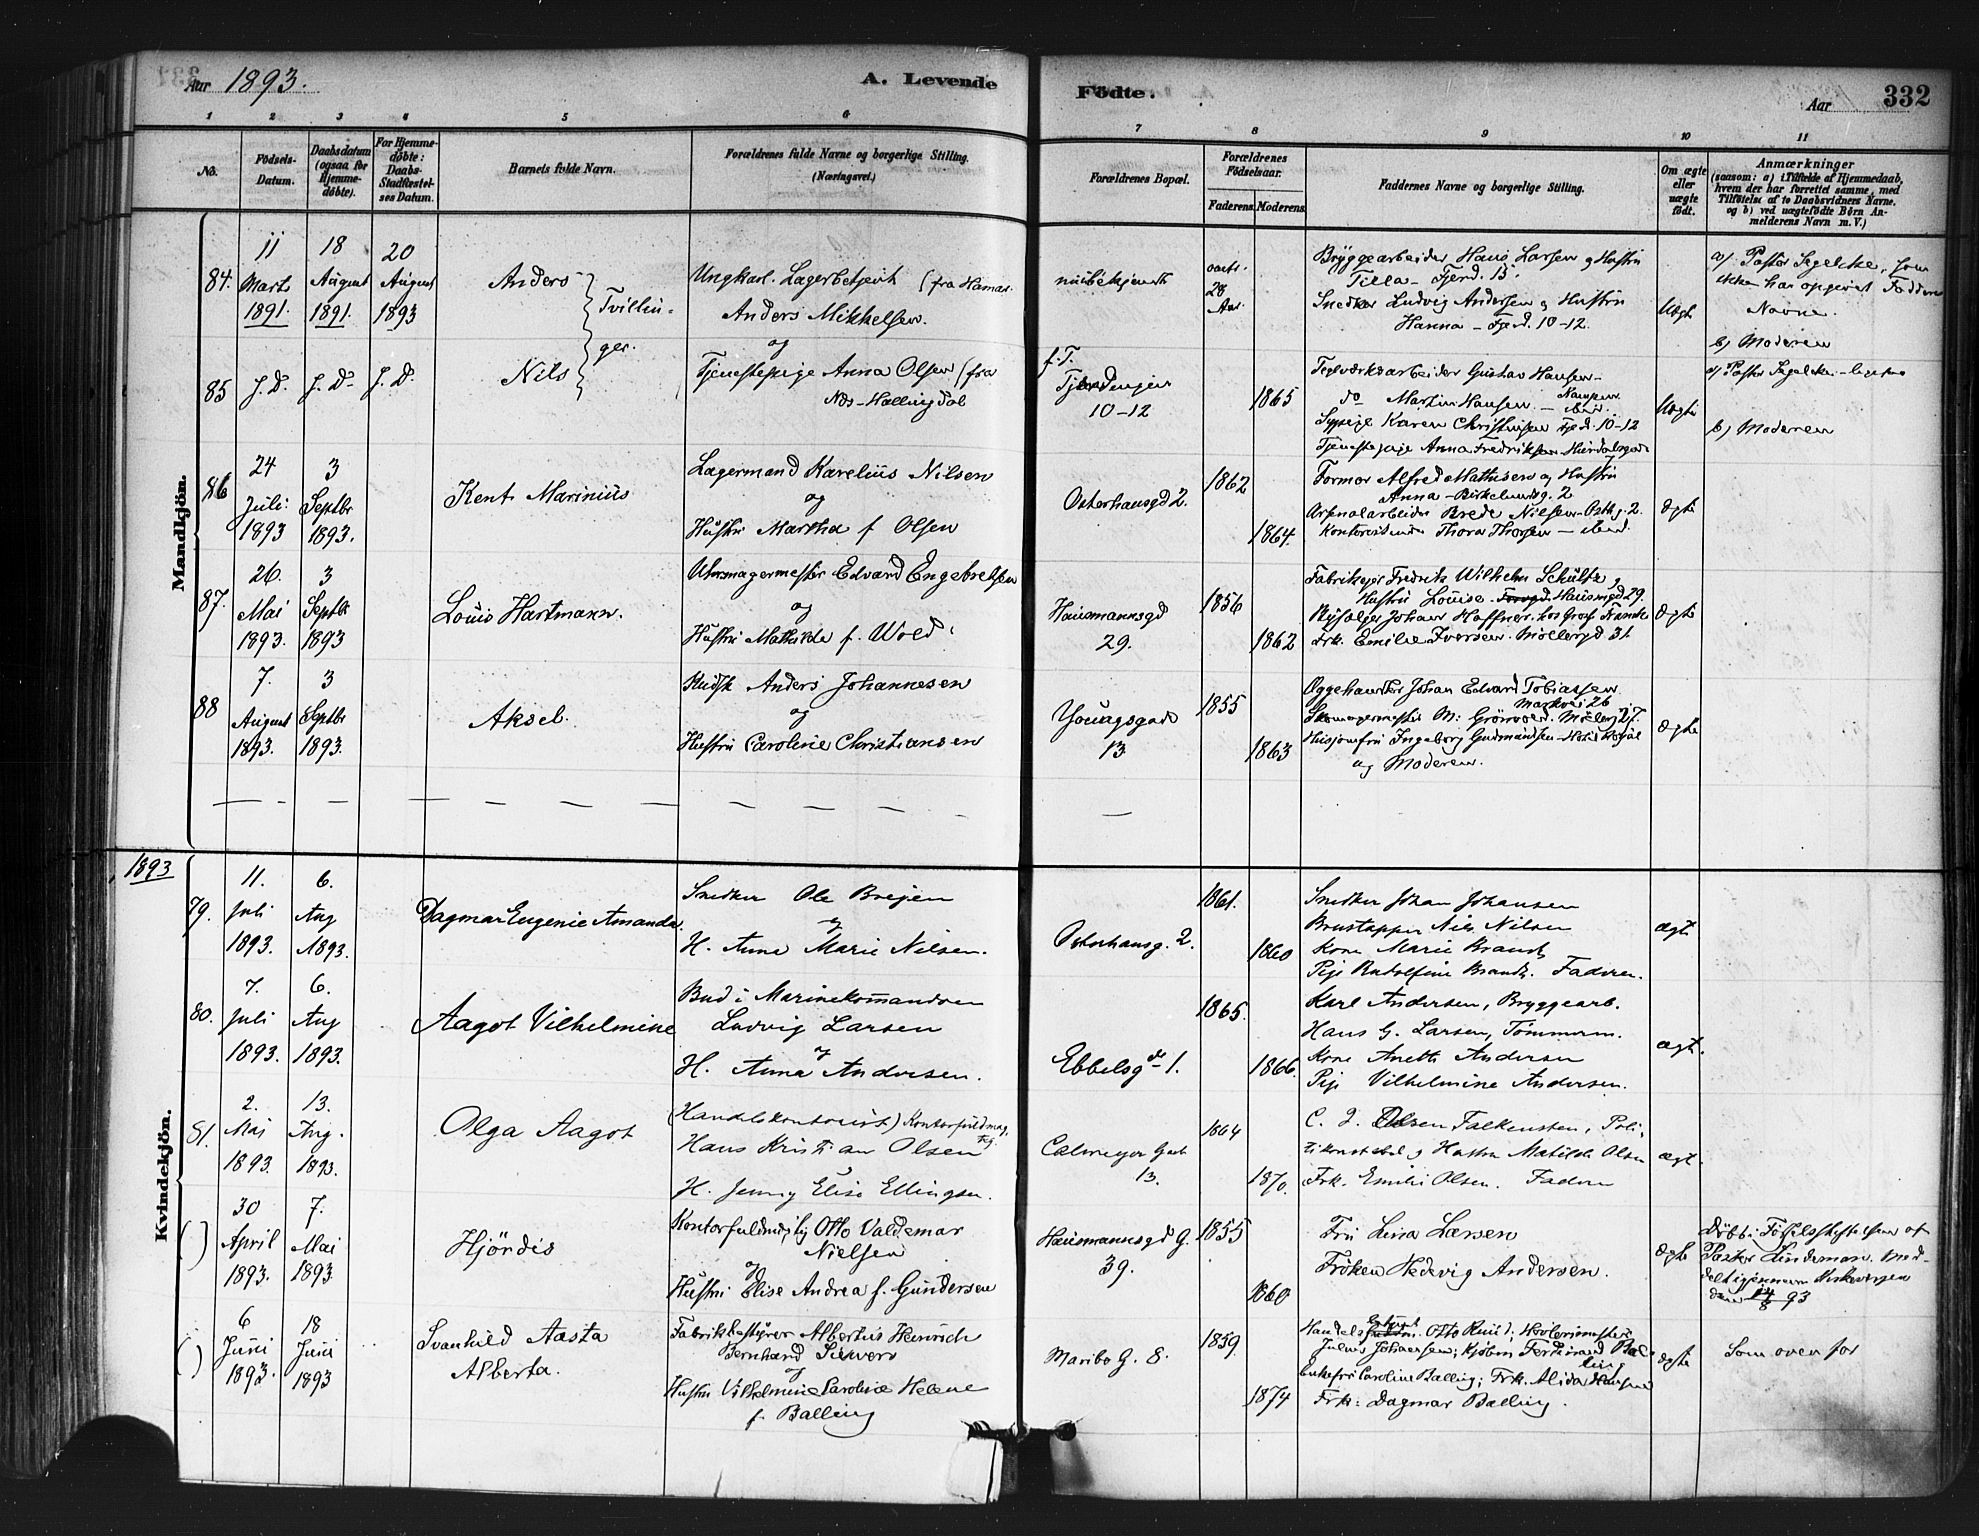 Aar 1893.
A. Levende
Födte.
Aar
332
1 2 3 4 5 6
7 8 9 10 11
No.
Födsels-
Datum.
Daabsdatum
(ogsaa for
Hjemme-
döbte).
For Hjemme-
döbte:
Daabs-
Stadfæstel-
ses Datum.
Barnets fulde Navn.
Forældrenes fulde Navne og borgerlige Stilling.
(Næringsvei.)
Forældrenes Bopæl.
Forældrenes
Födselsaar.
Faderens. Moderens.
Faddernes Navne og borgerlige Stilling.
Om ægte
eller
uægte
födt.
Anmærkninger
(saasom: a) i Tilfælde af Hjemmedaab,
hvem der har forrettet samme, med
Tilföielse af to Daabsvidners Navne.
og b) ved uægtefödte Börn An-
melderens Navn m. V.)
Mandkjön.
84.
11
Marts
1891.
18
August
1891.
20
August
1893
Anders
Tvillin-
ger.
Ungkarl. Lagerbetjent (fra Hamar.
Anders Mikkelsen.
og
ubekjendt
28
Aar
Bryggearbeider Hans Larsen og Hustru
Tilla - Fjerd. 15.
Snedker Ludvig Andersen og Hustru
Hanna - Fjerd. 10-12.
Uægte
a) Pastor Segelcke, som
ikke har opgivet Faddere
Navne.
b) Moderen
85
J. D. J. D. J. D.
Nils
Tjenestepige Anna Olsen (fra
Næs-Hallingdal
f. T.
10-12
1865
Teglværksarbeider Gustav Hansen
do Martin Hansen
Sypige Karen Christensen Fjerd. 10-12
Tjenestepige Anna Fredriksen
Uægte
a) Pastor Segelcke - ligesaa
b) Moderen
86
24
Juli
1893
3
Septbr
1893.
Kent Marinius
Lagermand Karelius Nilsen
og
Hustru Martha f Olsen
Osterhausgd 2.
1862
1864.
Formor Alfred Mathisen og Hustru
Anna - Birkelundsg. 2
Arsenalarbeider Brede Nilsen - Osthg. 2.
Kontorist Thora Thorsen - ibid.
Ægte
87.
26.
Mai
1893.
3
Septbr
1893
Louis Hartmann.
Uhrmagermester Edvard Engebretsen
og
Hustru Mathilde f. Wold
Hausmannsgd
29.
1856
1862
Fabrikeier Fredrik Wilhelm Schultz,
Hustru Louise. Hausmgd 29.
Johan Haffner, hos Grosf. Franck
Frk. Emilie Iversen. Möllergd 31
Ægte
88
7.
August
1893.
3
Septbr
1893.
Aksel.
Anders Johannesen
og
Hustru Caroline Christiansen
Youngsgade
13
1855
1863
Æggehandler Johan Edvard Tobiassen
Markvei 26
Skomagermester M. Grönvold. Möllerg 27.
Husjomfru Ingeborg Gudmundsen - Hotel Royal
og Moderen.
Ægte
Kvindekjön.
1893
79.
11.
Juli
1893.
6.
Aug
1893.
Dagmar Eugenie Amanda.
Snedker Ole Breien
og
H. Anne Marie Nilsen.
Osterhausg. 2.
1861.
1860
Snedker Johan Johansen
Brustapper Nils Nilsen
Kone Marie Brandt
Pige Rudolfine Brandt. Faderen.
ægt
80.
7.
Juli
1893.
6.
Aug
1893.
Aagot Vilhelmine
Bud i Marinekommandoen
Ludvig Larsen
og
H. Anna Andersen.
Ebbelsgde 1.
1865.
1866.
Karl Andersen, Bryggearb.
Hans G. Larsen, Tömmerm.
Kone Anette Andersen
Pige Vilhelmine Andersen.
ægt.
81.
2.
Mai
1893.
13.
Aug.
1893.
Olga Aagot
(Handelskontorist) Kontorfuldmæg-
tig
Hans Kristian Olsen
H. Jenny Elise Ellingsen.
Calmeyer Gade
13.
1864
1870.
C. J. Olsen Falkensten, Poli-
tikonstabel og Hustru Matilde Olsen
Frk. Emilie Olsen. Faderen
ægt.
( )
30
April
1893.
7.
Mai
1893.
Hjördis
Kontorfuldmægtig Otto Valdemar
Nielsen
og
Hustru Elise Andrea f. Gundersen
Hausmannsgd G.
39.
1855
1860
Fru Lina Larsen
Fröken Hedevig Andersen.
ægte
Döbt i Födselsstiftelsen af
Pastor Lindeman. Med-
delt igjennem Kirkevergen
den 14/8 93
( )
6
Juni
1893.
18
Juni
1893
Svanhild Aasta
Alberta.
Fabrikbestyrer Albertus Heinrich
Bernhard Siewers
og
Hustru Vilhelmine Caroline Helene
f. Balling
Maribo G. 8.
1859
1874
Handelsbetjent Otto Ruud; Hövlerimester
Julius Johansen; Kjöbm Ferdinand Bal-
ling
Enkefru Caroline Balling; Frk. Alida Hansen
Frk. Dagmar Balling.
ægte
Som ovenfor